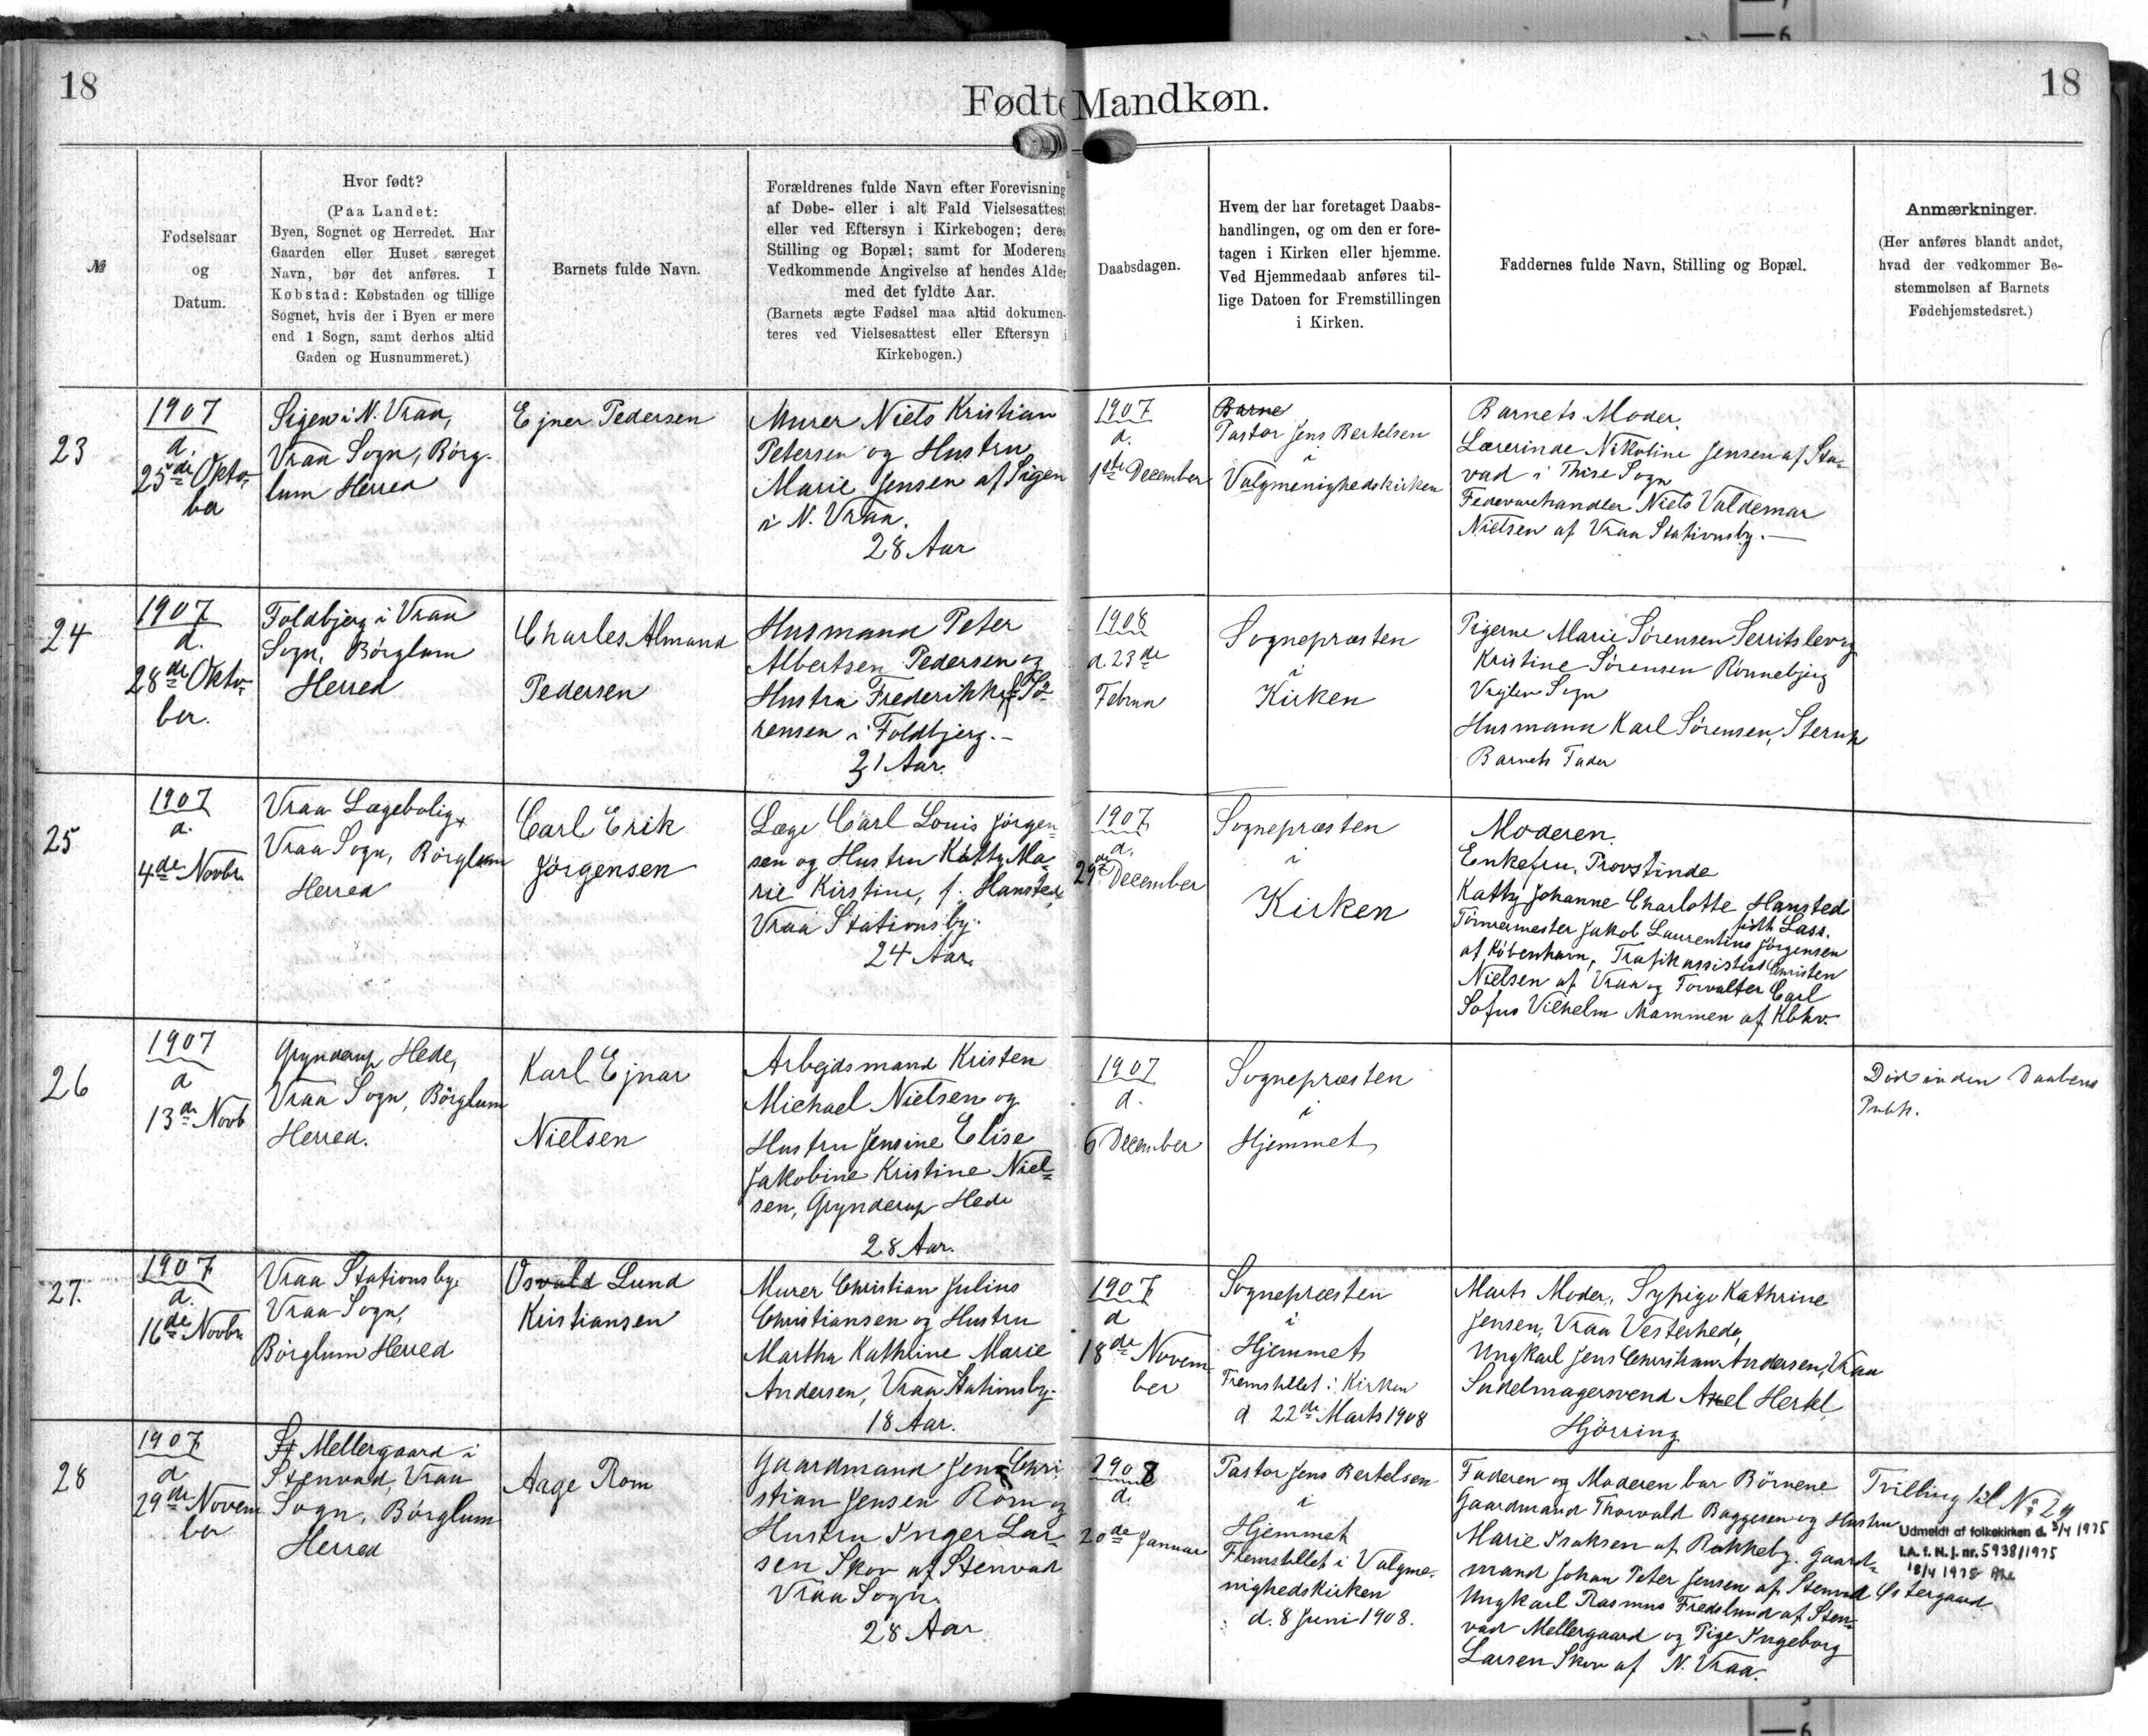 18
Fødte Mandkøn.
18
№
Fødselsaar
og
Datum.
Hvor født?
(Paa Landet:
Byen, Sognet og Herredet. Har
Gaarden eller Huset særeget
Navn, bør det anføres. I
Købstad: Købstaden og tillige
Sognet, hvis der i Byen er mere
end 1 Sogn, samt derhos altid
Gaden og Husnummeret.)
Barnets fulde Navn.
Forældrenes fulde Navn efter Forevisning
af Døbe- eller i alt Fald Vielsesattest
eller ved Eftersyn i Kirkebogen; deres
Stilling og Bopæl; samt for Moderens
Vedkommende Angivelse af hendes Alder
med det fyldte Aar.
(Barnets ægte Fødsel maa altid dokumen-
teres ved Vielsesattest eller Eftersyn i
Kirkebogen.)
Daabsdagen.
Hvem der har foretaget Daabs-
handlingen, og om den er fore-
tagen i Kirken eller hjemme.
Ved Hjemmedaab anføres til-
lige Datoen for Fremstillingen
i Kirken.
Faddernes fulde Navn, Stilling og Bopæl.
Anmærkninger.
(Her anføres blandt andet,
hvad der vedkommer Be-
stemmelsen af Barnets
Fødehjemstedsret.)
23
1907
d.
25de Okto-
ber
Sigen i N. Vraa,
Vraa Sogn, Børg-
lum Herred
Ejner Pedersen
Murer Niels Kristian
Petersen og Hustru
Marie Jensen af Sigen
i N. Vraa.
28 Aar
1907
d.
1ste December
Barne
Pastor Jens Bertelsen
i
Valgmenighedskirken
Barnets Moder,
Lærerinde Nikoline Jensen af Sta-
vad i Thise Sogn
Fedevarehandler Niels Valdemar
Nielsen af Vraa Stationsby.
24
1907
d.
28de Okto-
ber.
Foldbjerg i Vraa
Sogn, Børglum
Herred
Charles Almand
Pedersen
Husmand Peter
Albertsen Pedersen og
Hustru Frederikke f. Sö-
rensen i Foldbjerg.
31 Aar.
1908
d 23de
Februa
Sognepræsten
i
Kirken
Pigerne Marie Sørensen Serritslev og
Kristine Sørensen Rønnebjerg
Vrejlev Sogn
Husmand Karl Sørensen, Sterup
Barnets Fader
25
1907
d.
4de Novbr
Vraa Lægebolig
Vraa Sogn, Børglum
Herred
Carl Erik
Jørgensen
Læge Carl Louis Jørgen-
sen og Hustru Katty Ma-
rie Kirstine, f. Hansted,
Vraa Stationsby
24 Aar.
1907
d.
29de December
Sognepræsten
i
Kirken
Moderen.
Enkefru, Provstinde
Katty Johanne Charlotte Hansted
født Lass.
Tømrermester Jakob Laurentius Jørgensen
af København, Trafikassistent Christen
Nielsen af Vraa og Forvalter Carl
Sofus Vilhelm Mammen af Kbhv.
26
1907
d
13de Novb
Grynderup Hede,
Vraa Sogn, Børglum
Herred.
Karl Ejnar
Nielsen
Arbejdsmand Kristen
Michael Nielsen og
Hustru Jensine Elise
Jakobine Kristine Niel-
sen, Grynderup Hede
28 Aar.
1907
d.
6 December
Sognepræsten
i
Hjemmet
Død inden Daabens
Publ.
27.
1907
d.
16de Novbr
Vraa Stationsby
Vraa Sogn,
Børglum Herred
Osvald Lund
Kristiansen
Murer Christian Julius
Christiansen og Hustru
Martha Kathrine Marie
Andersen, Vraa Stationsby
18 Aar.
1907
d
18de Novem
ber
Sognepræsten
i
Hjemmet
Fremstillet i Kirken
d 22de Marts 1908
Moder, Sypige Kathrine
Jensen, Vraa Vesterhede,
Ungkarl Jens Christian Andersen, Vraa
Sadelmagersvend Axel Hertel
Hjørring
28
1907
d
29de Novem
ber
Mellergaard i
Stenvad, Vraa
Sogn, Børglum
Herred
Aage Rom
Gaardmand Jens Chri
stian Jensen Rom og
Hustru Inger Lar-
sen Skov af Stenvad
Vraa Sogn.
28 Aar
1908
d.
20de Januar
Pastor Jens Bertelsen
i
Hjemmet
Fremstillet i Valgme-
nighedskirken
d. 8 Juni 1908.
Faderen og Moderen bar Børnene
Gaardmand Thorvald Baggesen og Hustru
Marie Isaksen af Rakkeby. Gaard-
mand Johan Peter Jensen af Stenvad Østergaard
Ungkarl Rasmus Fredslund af Sten-
vad Mellergaard og Pige Ingeborg
Larsen Skov af N. Vraa.
Tvilling til No 29
Udmeldt af folkekirken d. 3/4 1975
LA. f. N. j. nr. 5938/1975
18/4 1975